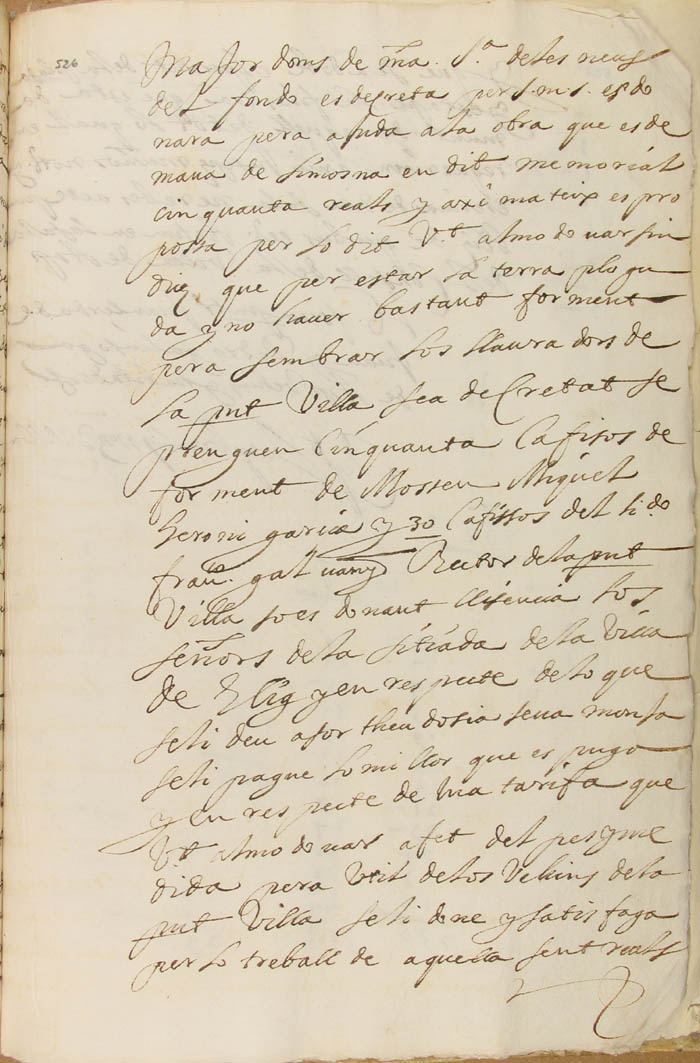 526
Major doms de nra. Sra. de les neus
del fondo es decreta per s.m.s. es do
nara pera ajuda a la obra que es de
mana de limosna en dit memorial
cinquanta reals y axi mateix es pro
possa per lo dit Vt. almodouar sin
dich que per estar la terra plogu
da y no hauer bastant forment
pera sembrar los llauradors de
la pnt Villa sea decretat se
prenguen Cinquanta Cafisos de
forment de Mossen Miquel
heroni garcia y 30 Cafissos del li.do
fran. galuany Rector de la pnt
Villa so es donant llisencia los
señors de la sitiada de la Villa
de Elig y en respecte de lo que
seli deu a sor theudosia seua monja
seli pague lo millor que es puga
y en respecte de una tarifa que
Vt almodouar a fet del pes y me
dida pera Vtil de los Vehins de la
pnt Villa seli done y satisfaga
per lo treball de aquella sent reals